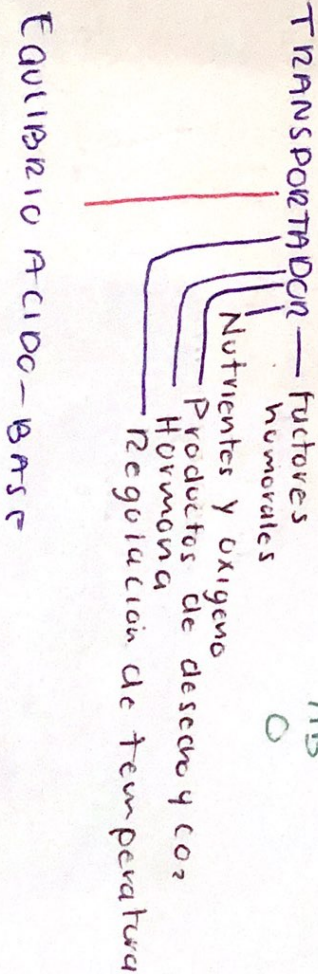 TRANSPORTADOR — factores
humorales
Nutrientes y oxigeno
Productos de desecho y CO2
Hormona
Regulación de temperatura
EQUILIBRIO ACIDO-BASE
AB
O